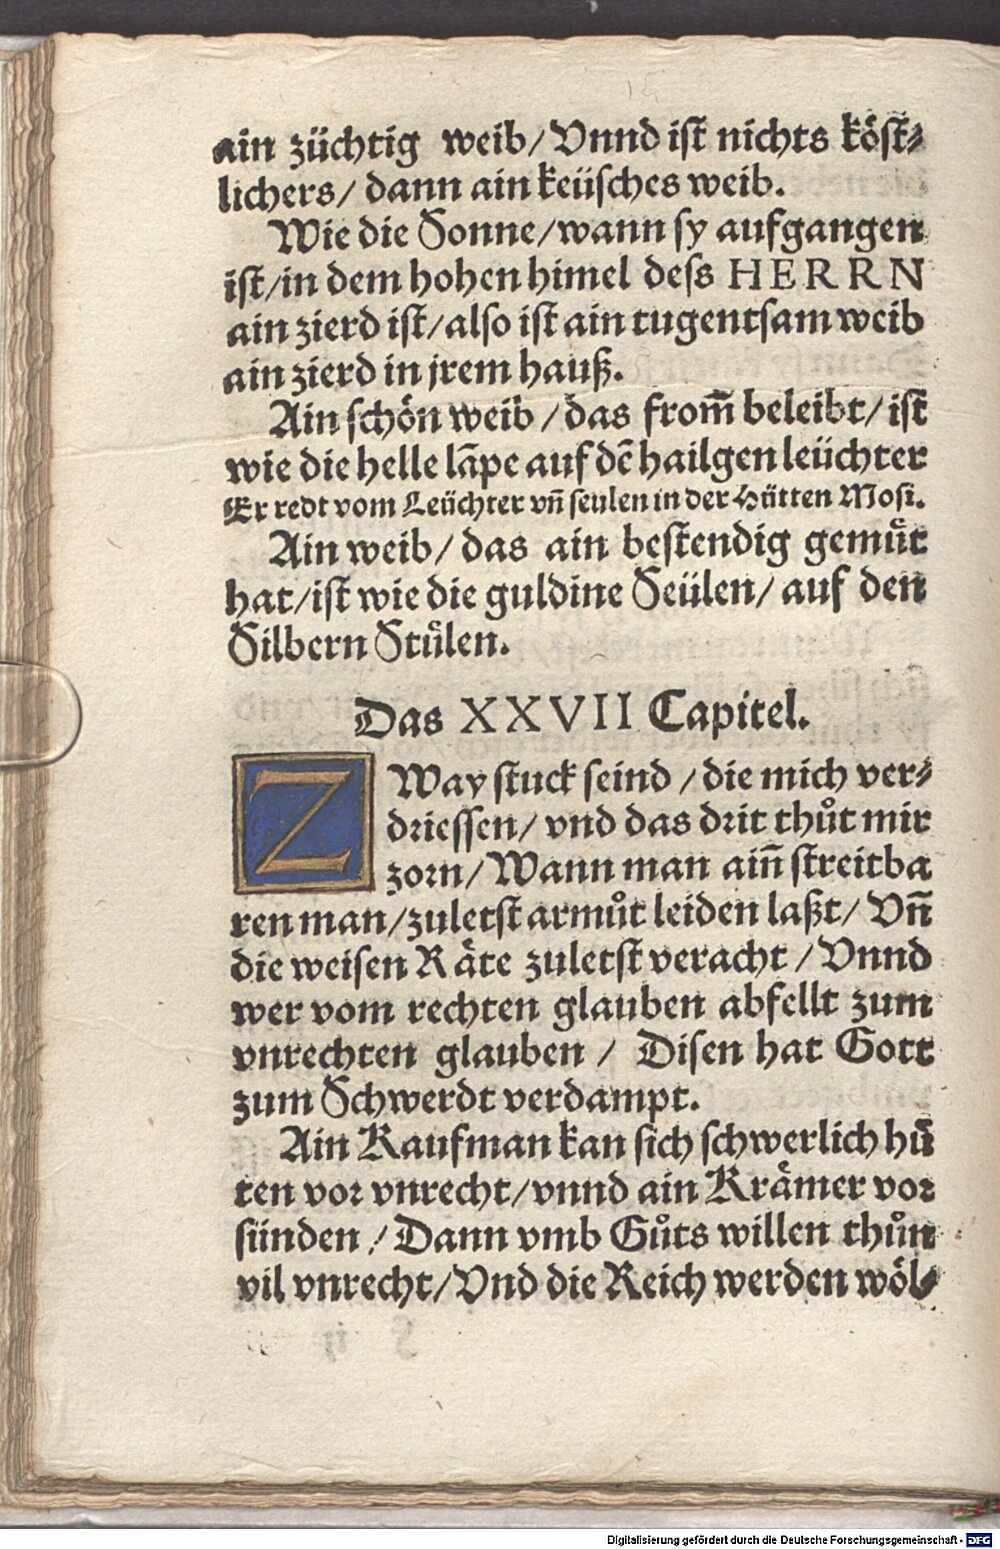 ain züchtig weib/ Vnnd ist nichts köst⸗
lichers/ dann ain keüsches weib.
Wie die Sonne/wann sy aufgangen
ist/in dem hohen himel dess HERRN
ain zierd ist/also ist ain tugentsam weib
ain zierd in jrem hauß.
Ain schön weib/das from̄ beleibt/ist
wie die helle lāpe auf dē hailgen leüchter
Er redt vom Leüchter vn̄ seulen in der Hütten Mosi.
Ain weib/ das ain bestendig gemuͤt
hat/ist wie die guldine Seülen/ auf den
Silbern Stuͤlen.
Das XXVII Capitel.
ZWay stuck seind/die mich ver⸗
driessen/ vnd das drit thuͦt mir
zorn/Wann man ain̄ streitba
ren man/zuletst armuͦt leiden laßt/ Vn̄
die weisen Räte zuletst veracht/Vnnd
wer vom rechten glauben abfellt zum
vnrechten glauben/ Disen hat Gott
zum Schwerdt verdampt.
Ain Kaufman kan sich schwerlich huͤ
ten vor vnrecht/vnnd ain Krämer vor
sünden/Dann vmb Guͦts willen thuͦn
vil vnrecht/Vnd die Reich werden wöl⸗
Digitalisierung gefördert durch die Deutsche Forschungsgemeinschaft - DFG